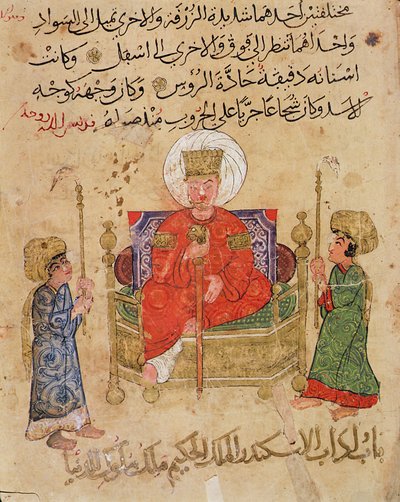 مختلفتين احدهما شديدة الزرقة والاخرى تميل الى السواد
واحداهما تنظر الى فوق والاخرى الى اسفل وكانت
اسنانه دقيقة حادة الرؤس وكان وجهه كوجه
الاسد وكان شجاعا جريا على الحروب منذ صباه قدس الله روحه
باب اداب الاسكندر الملك الحكيم ملك ملوك الدنيا